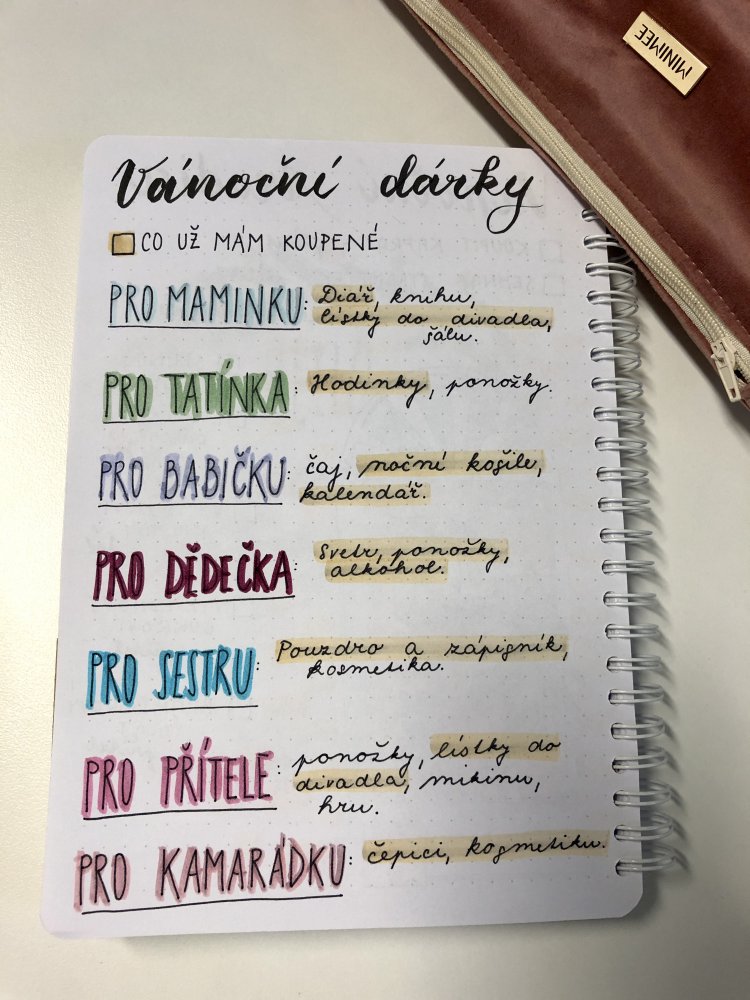 MINIMEE
Vánoční dárky
CO UŽ MÁM KOUPENÉ
PRO MAMINKU: Diář, knihu,
lístky do divadla,
šálu.
PRO TATÍNKA: Hodinky, ponožky.
PRO BABIČKU: čaj, noční košile,
kalendář.
PRO DĚDEČKA: Svetr, ponožky,
alkohol.
PRO SESTRU: Pouzdro a zápisník,
kosmetika.
PRO PŘÍTELE: ponožky, lístky do
divadla, mikinu,
hru.
PRO KAMARÁDKU: čepici, kosmetiku.